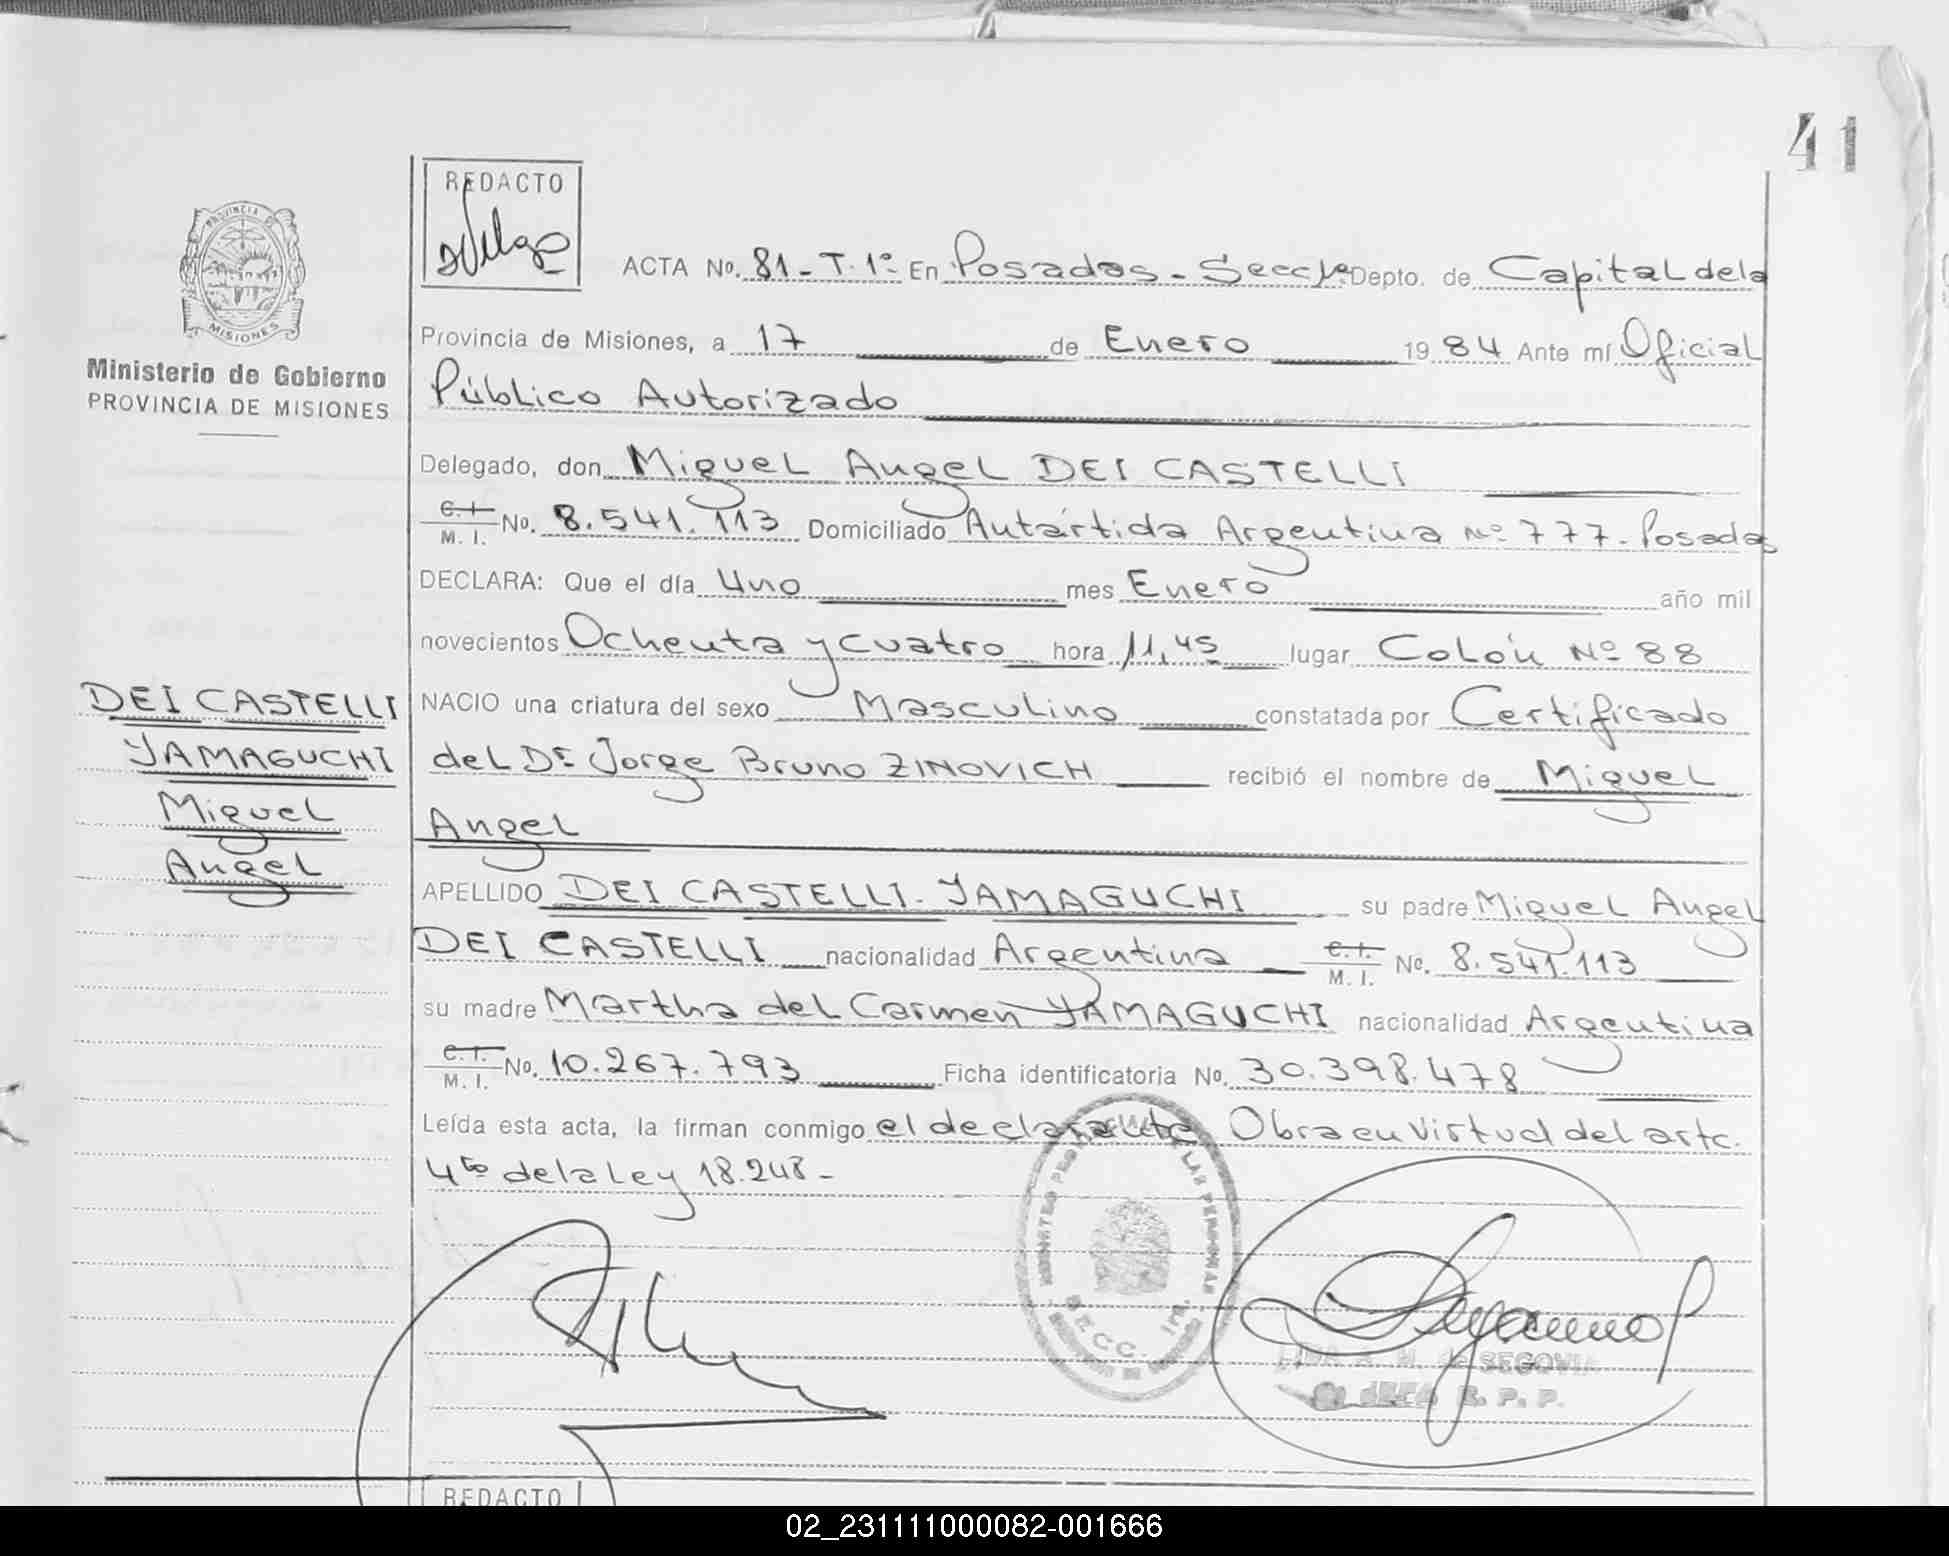 41
REDACTO
PROVINCIA DE
MISIONES
Ministerio de Gobierno
PROVINCIA DE MISIONES
ACTA No. 81 - T. 1º En Posadas - Secc 1º Depto. de Capital de la
Provincia de Misiones, a 17 de Enero 1984 Ante mí Oficial
Público Autorizado
Delegado, don Miguel Angel DEI CASTELLI
C. I. M. I. No. 8.541.113 Domiciliado Antártida Argentina Nº 777 - Posadas
DECLARA: Que el día Uno mes Enero año mil
novecientos Ochenta y cuatro hora 11,45 lugar Colón Nº 88
NACIO una criatura del sexo Masculino constatada por Certificado
del Dr Jorge Bruno ZINOVICH recibió el nombre de Miguel
Angel
DEI CASTELLI
YAMAGUCHI
Miguel
Angel
APELLIDO DEI CASTELLI - YAMAGUCHI su padre Miguel Angel
DEI CASTELLI nacionalidad Argentina C. I. M. I. No. 8.541.113
su madre Martha del Carmen YAMAGUCHI nacionalidad Argentina
C. I. M. I. No. 10.267.793 Ficha identificatoria No. 30.398.478
Leída esta acta, la firman conmigo el declarante, Obra en virtud del artc.
4to de la ley 18.248 -
DE LAS PERSONAS
SECC. 1ra.
A. M. de SEGOVIA
R. P. P.
REDACTO
02_231111000082-001666